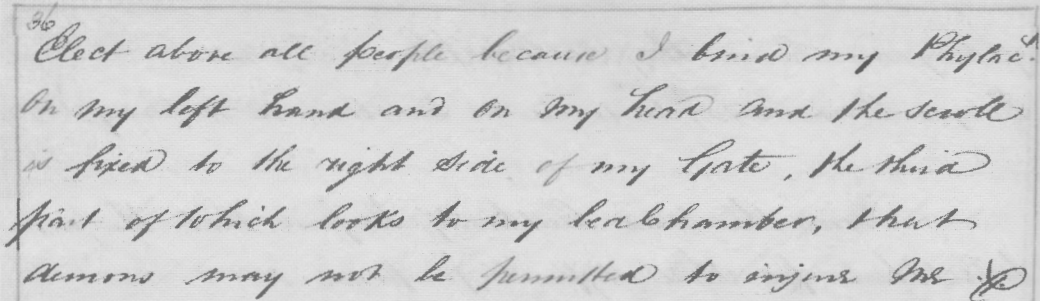 36
Elect above all people because I bind my Phylac.rs
on my left hand and on my head and the scroll
is fixed to the right side of my Gate, the third
part of which looks to my bedChamber, that
demons may not be permitted to injure me